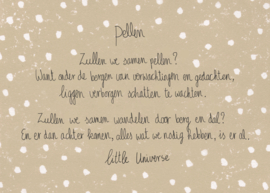 pellen
Zullen we samen pellen?
Want onder de bergen van verwachtingen en gedachten,
liggen verborgen schatten te wachten.
Zullen we samen wandelen door berg en dal?
En er dan achter komen, alles wat we nodig hebben, is er al.
little Universe